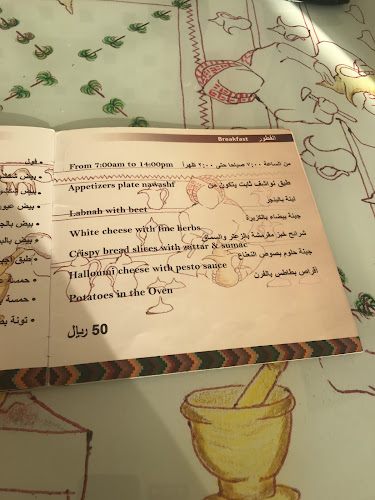 Breakfast الفطور
From 7:00am to 14:00pm من الساعة ٧:٠٠ صباحا حتى ٢:٠٠ ظهرا
Appetizers plate nawashf طبق نواشف ثابت يتكون من
Labnah with beet لبنة بالبنجر
White cheese with fine herbs جبنة بيضاء بالكزبرة
Crispy bread slises with zattar & sumac شرائح خبز مقرمشة بالزعتر والسماق
Halloumi cheese with pesto sauce جبنة حلوم بصوص النعناع
Potatoes in the Oven أقراص بطاطس بالفرن
50 ريال
• فول
• بيض
• بيض
• بيض
• طبق
• حمسة
• حمسة
• تونة